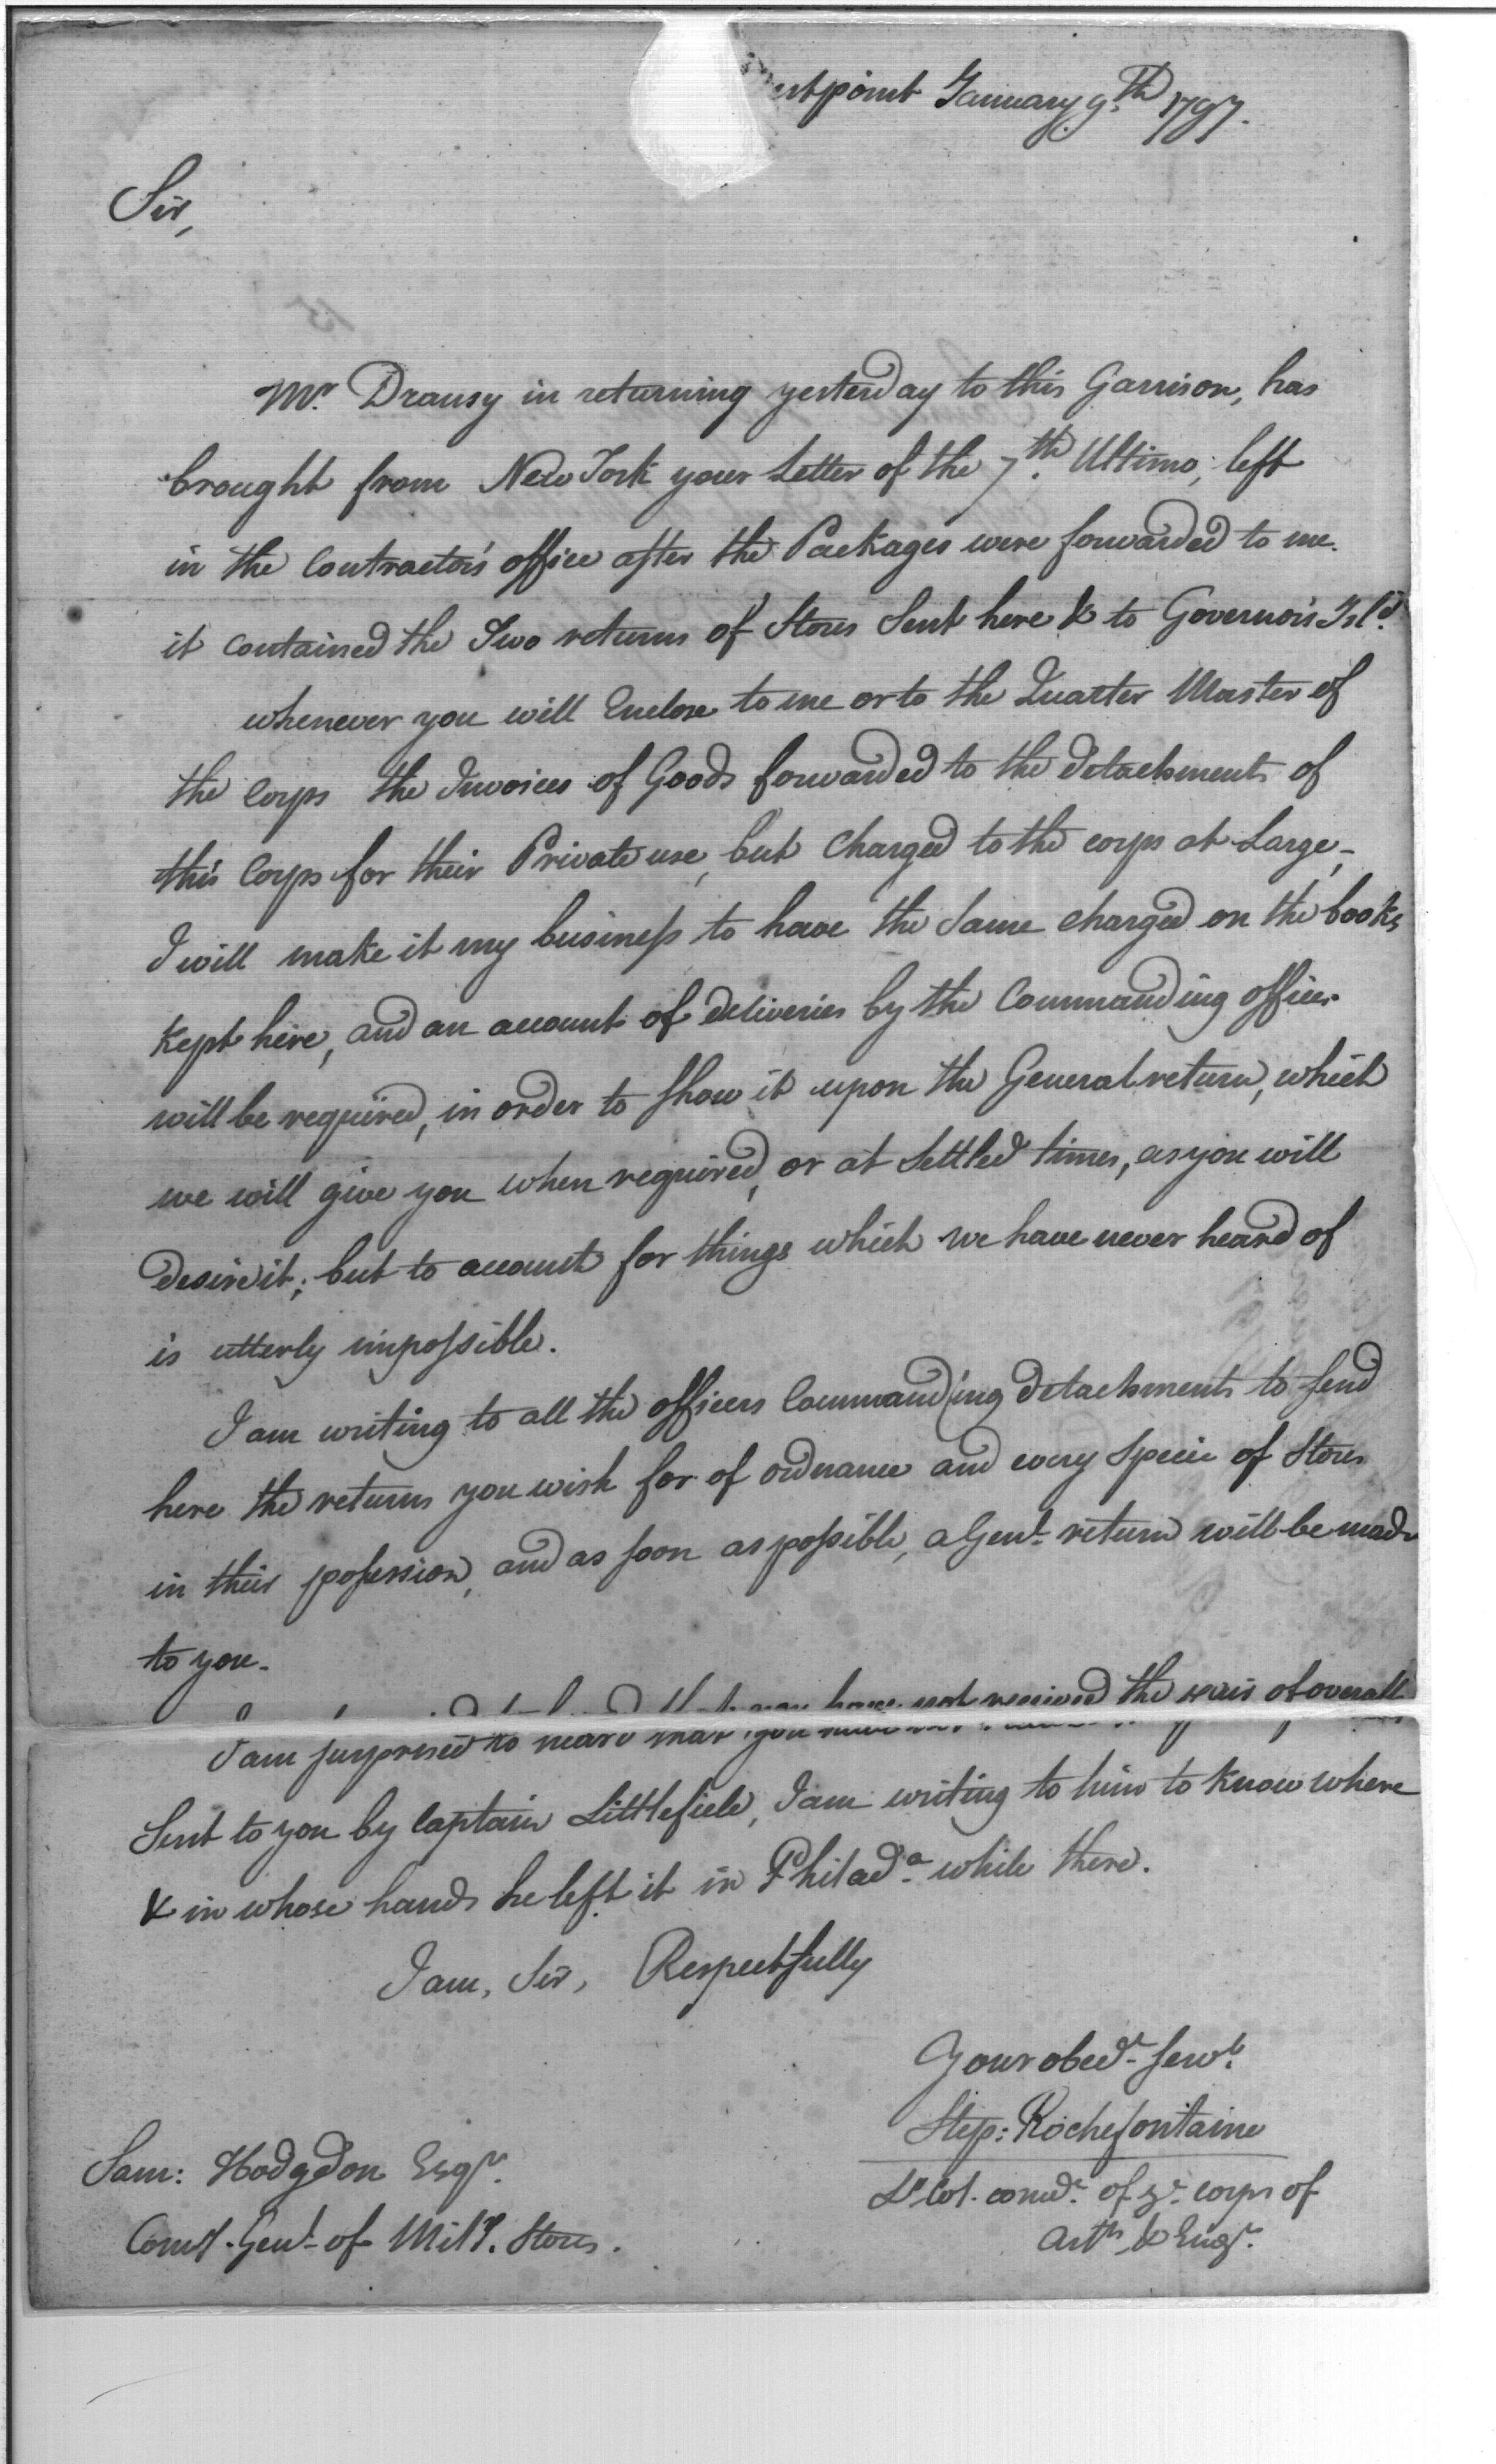 estpoint January 9.th 1797.
Sir,
Mr. Dransy in returning yesterday to this Garrison, has
brought from New York your Letter of the 7.th Ultimo, left
in the Contractor's office after the Packages were forwarded to me.
it contained the Two returns of Stores Sent here & to Governor's Isl.d
whenever you will Enclose to me or to the Quarter Master of
the Corps the Invoices of Goods forwarded to the detachments of
this Corps for their Private use, but Charged to the corps at Large,-
I will make it my business to have the Same charged on the books
kept here, and an account of deliveries by the Commanding officer
will be required, in order to Show it upon the General return, which
we will give you when required, or at Settled times, as you will
desire it; but to account for things which we have never heard of
is utterly impossible.
I am writing to all the officers Commanding detachments to send
here the returns you wish for of ordnance and every Specie of Stores
in their possession, and as soon as possible, a Genl. return will be made
to you.
I am surprised to heard that you have not received the pair of overall
Sent to you by Captain Littlefield, I am writing to him to know where
& in whose hands he left it in Philad.a while there.
I am, Sir, Respectfully
Your obed.t Serv.t
Step: Rochefontaine
Lt. Col. comd.t of ye. corps of
Arts. & Engr.
Sam: Hodgdon Esqr.
Comy. Genl. of Mily. Stores.